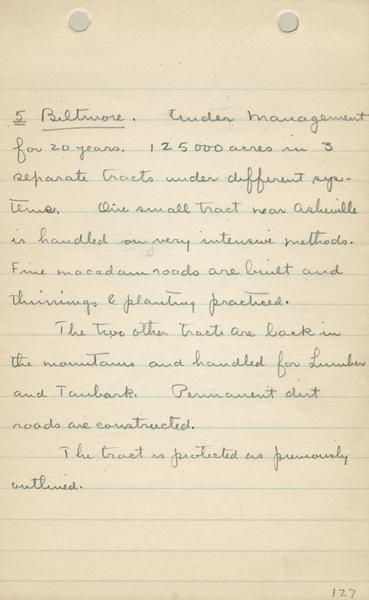 5 Biltmore. Under Management
for 20 years. 125000 acres in 3
separate tracts under different sys-
tems. One small tract near Asheville
is handled on very intensive methods.
Fine macadam roads are built and
thinnings & planting practiced.
The two other tracts are back in
the mountains and handled for Lumber
and Tanbark. Permanent dirt
roads are constructed.
The tract is protected as previously
outlined.
127